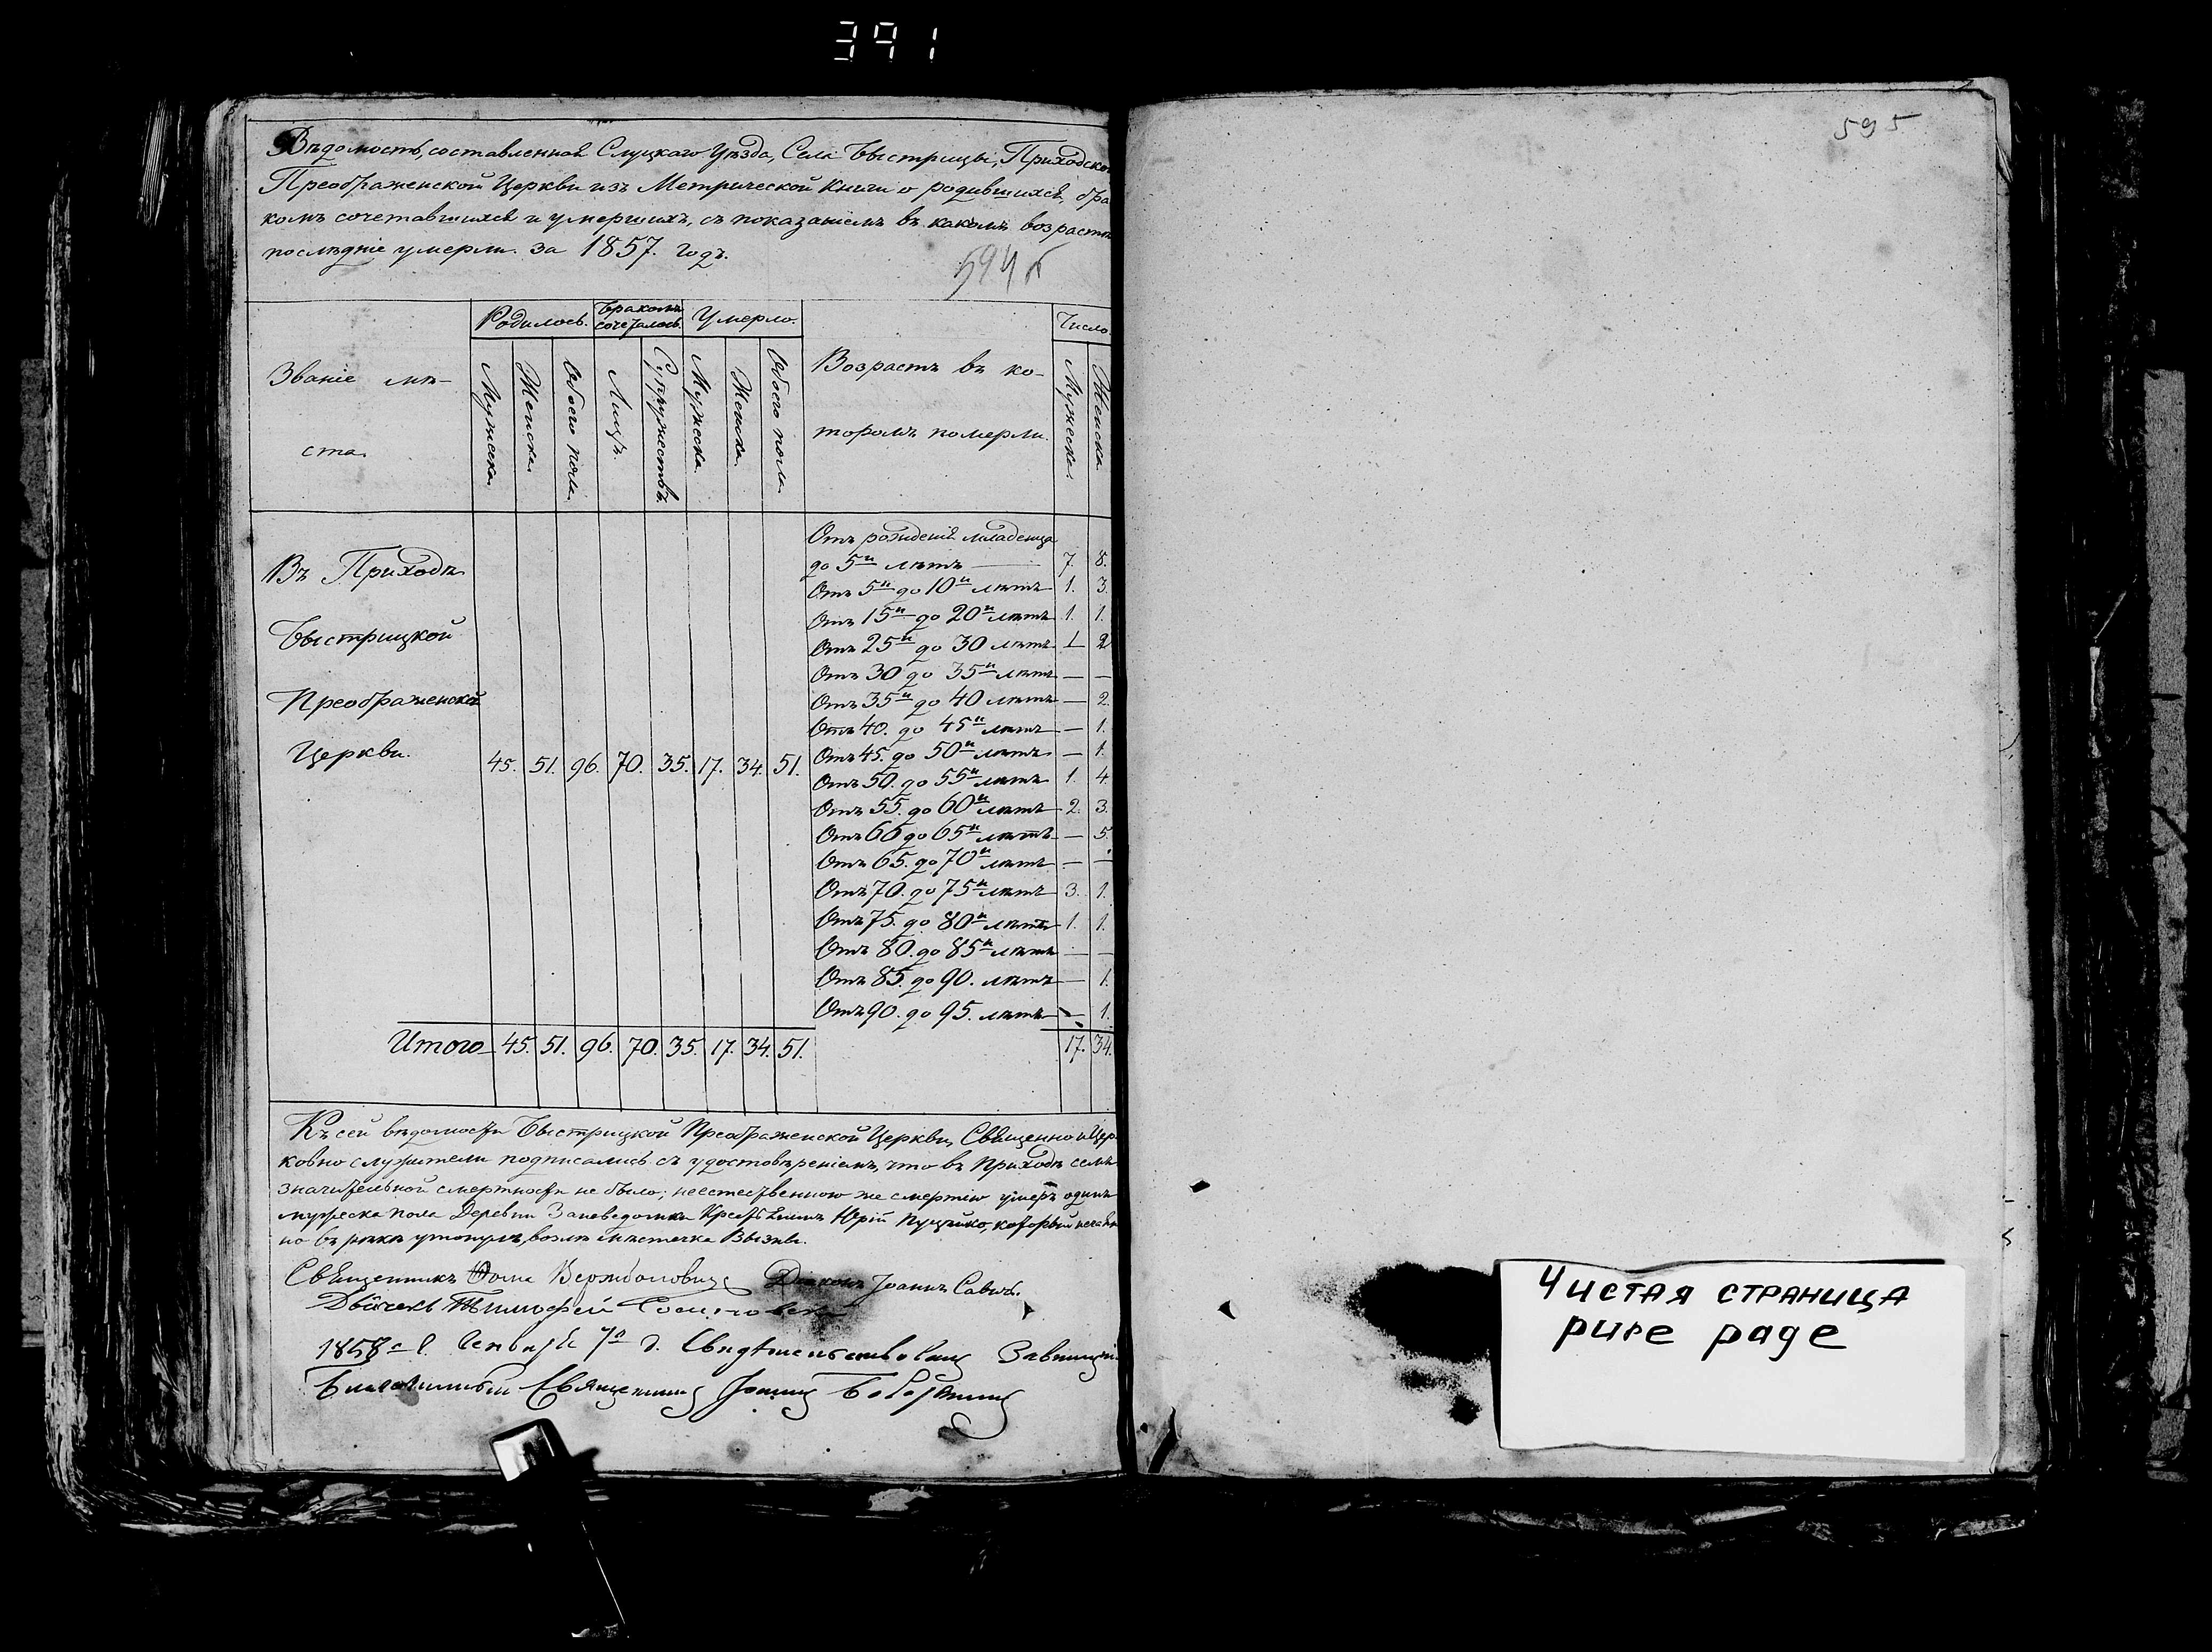 391
Вѣдомость, составленная Слуцкаго Уѣзда, Села Быстрицы, Приходско
Преображенской Церкви изъ Метрической Книги о родившихся, бра
комъ сочетавшихся и умершихъ, съ показаніемъ въ какомъ возрастѣ
послѣдніе умерли. За 1857. годъ.
594
Родилось. Бракомъ сочеталось. Умерло. Число.
Званіе мѣ-
ста.
Мужеска. Женска. Обоего пола. Лицъ. Супружествъ. Мужеска. Женска. Обоего пола.
Возрастъ въ ко-
торомъ померли.
Мужеска. Женска.
Въ Приходѣ
Быстрицкой
Преображенской
Церкви. 45. 51. 96. 70. 35. 17. 34. 51.
Отъ рожденія младенца
до 5и лѣтъ — 7. 8.
Отъ 5и до 10и лѣтъ 1. 3.
Отъ 15и до 20и лѣтъ 1. 1.
Отъ 25и до 30 лѣтъ 1 2
Отъ 30 до 35и лѣтъ — —
Отъ 35и до 40 лѣтъ — 2.
Отъ 40. до 45и лѣтъ — 1.
Отъ 45. до 50и лѣтъ — 1.
Отъ 50. до 55и лѣтъ 1. 4
Отъ 55. до 60и лѣтъ 2. 3.
Отъ 60 до 65и лѣтъ — 5.
Отъ 65. до 70и лѣтъ — —
Отъ 70. до 75и лѣтъ 3. 1.
Отъ 75. до 80и лѣтъ 1. 1.
Отъ 80. до 85и лѣтъ — —
Отъ 85. до 90. лѣтъ — 1.
Отъ 90. до 95. лѣтъ — 1.
Итого 45. 51. 96. 70. 35. 17. 34. 51. 17. 34.
Къ сей вѣдомости Быстрицкой Преображенской Церкви, Священно и Цер
ковно служители подписались съ удостовѣреніемъ, что въ Приходѣ семъ
значительной смертности не было; неестественною же смертію умеръ одинъ
мужеска пола Деревни Крестьянинъ Юрій который нечаян
но въ рѣкѣ утонулъ, возлѣ мѣстечка Вызны.
Священникъ Фома Вержболовичъ Діаконъ Іоаннъ Савичъ.
Дьячекъ Тимофей
1858 г. Генваря 7 д. Свидѣтельствовалъ
Благочинный Священникъ Іоаннъ
595
Чистая страница
pure page